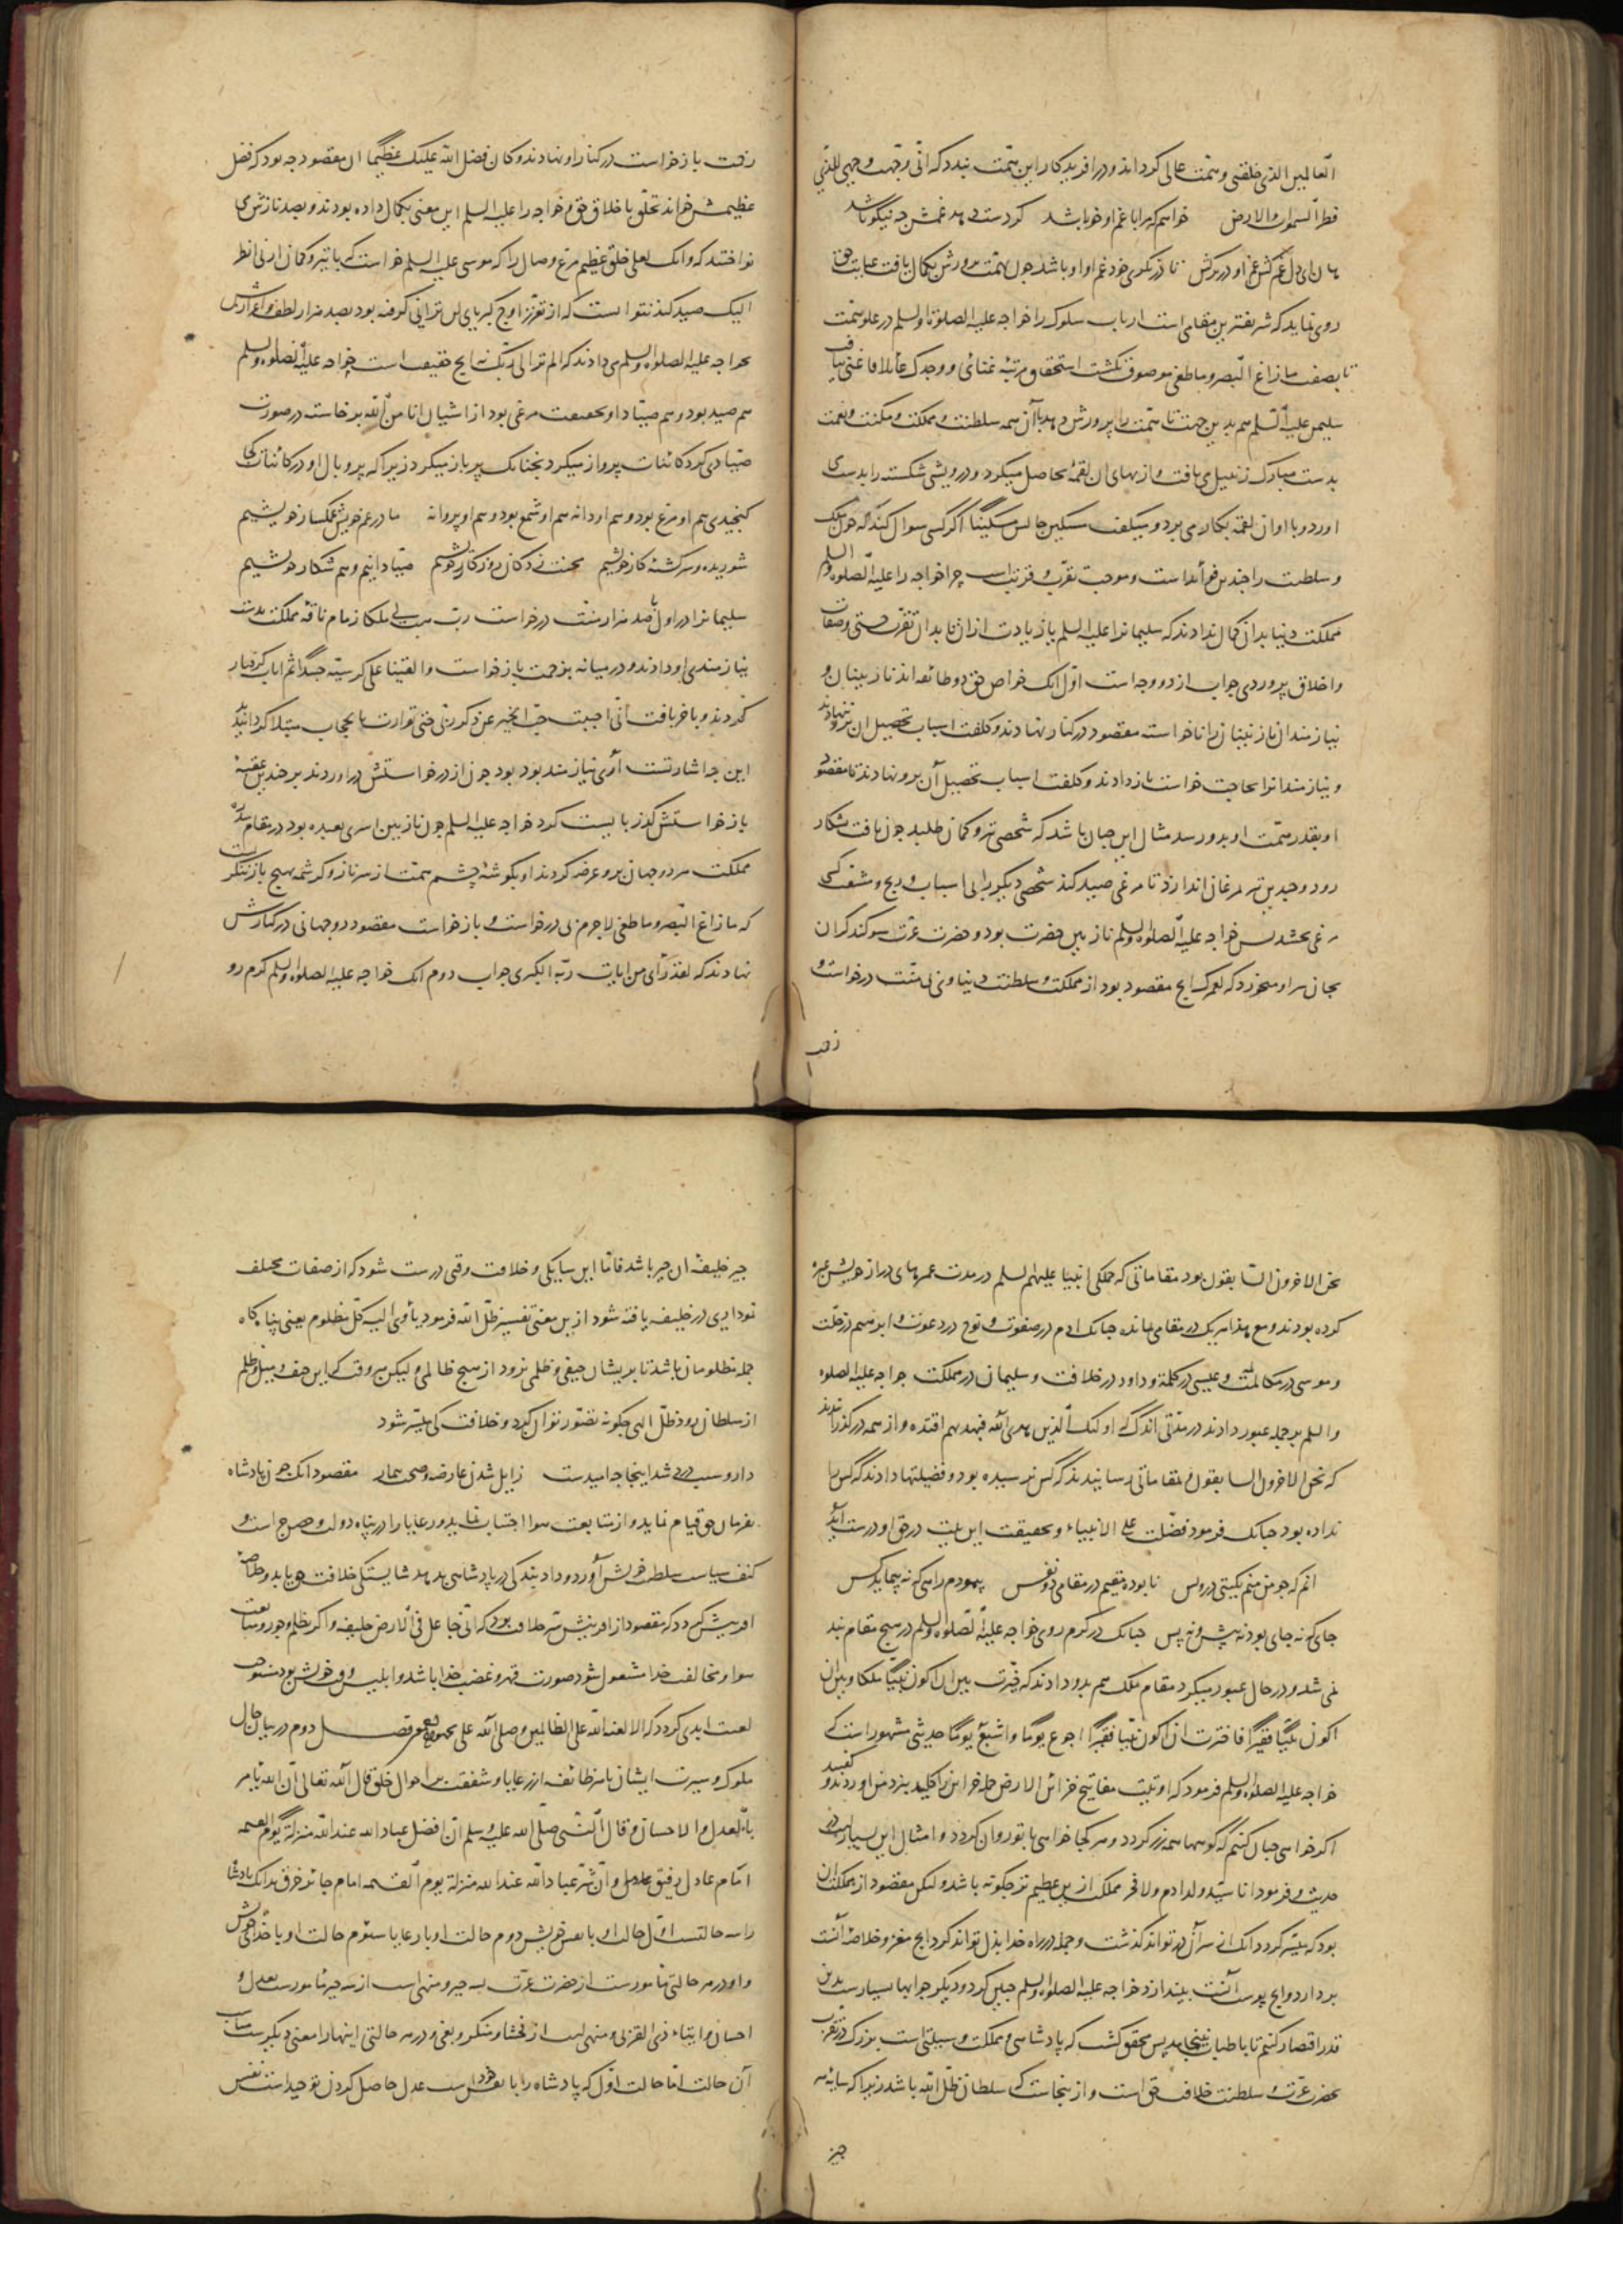 العالمین الذی خلقنی و همت عالی کرداند و در آفریدکار این همت بندد که انی وجهت وجهی للذی
فطر السموات والارض خواهم که مرا با غم او خو باشد کر دست دهد غمش چه نیکو باشد
هان ای دل غم کش غم او در بر کش تا در نکری خود غم او او باشد چون همت پرورش بکمال یافت عنایت حق
روی نماید که شریفترین مقامی است ارباب سلوک را خواجه علیه الصلوة والسلم در علو همت
تا بصفت ما زاغ البصر و ما طغی موصوف نکشت استحقاق مرتبه غنائی و وجدک عائلا فاغنی نیافت
سلیمن علیه السلم هم بدین جهت تا همت را پرورش دهد با آن همه سلطنت و مملکت و مکنت و نعمت
بدست مبارک زنبیل می بافت و از بهای آن لقمه حاصل میکرد و درویشی شکسته را بدست می
اورد و با او آن لقمه بکار می برد و میکفت مسکین جالس مسکینا اکر کسی سوال کند که چون ملک
و سلطنت را چندین فوائد است و موجب تقرب و قربت است چرا خواجه را علیه الصلوه والسلم
مملکت دنیا بدان کمال ندادند که سلیمان را علیه السلم یا زیادت از آن تا بدان تقرب جستی و صفات
و اخلاق پروردی جواب از دو وجه است اول آنک خواص حق دو طائفه اند نازنینان و
نیازمندان نازنینان را ناخواسته مقصود در کنار نهادند و کلفت اسباب تحصیل آن برو ننهادند
و نیازمندان را بحاجت خواست باز دادند و کلفت اسباب تحصیل آن برو نهادند تا مقصود
او بقدر همت او بدو رسد مثال این چنان باشد که شخصی تیر و کمان طلبد چون یافت بشکار
رود و چندین تیر بمرغان اندازد تا مرغی صید کند شخصی دیکر را بی اسباب و رنج و مشقت کسی
مرغی بخشد پس خواجه علیه الصلوه والسلم نازنین حضرت بود و حضرت عزت سوکند کران
بجان سر او میخورد که لعمرک ایچ مقصود بود از مملکت و سلطنت دنیاوی بی منت درخواست و
زفت
زفت باز خواست در کنار او نهادند و کان فضل الله علیک عظیما ان مقصود چه بود که فضل
عظیمش خواند تخلق باخلاق حق و خواجه را علیه السلم این معنی بکمال داده بودند و بصد نازش می
نواختند که وانک لعلی خلق عظیم مرغ وصال را که موسی علیه السلم خواست که با تیر و کمان ارنی انظر
الیک صید کند نتوانست که از تعزز اوج کبریای لن ترانی کرفته بود بصد هزار لطف و اعزازش
بخواجه علیه الصلوه والسلم می دادند که الم تر الی ربک نی ایج حقیقت است خواجه علیه الصلوه والسلم
هم صید بود و هم صیاد او بحقیقت مرغی بود از اشیان انا من الله برخاسته در صورت
صیادی کرد کائنات پرواز میکرد نه چنانک پر باز میکرد زیرا که پر و بال او در کائنات کی
کنجیدی هم او مرغ بود و هم او دانه هم او شمع بود و هم او پروانه ما در غم خویش غمکسار خویشیم
شوریده و سرکشته کار خویشیم محنت زدکان روزکار خویشیم صیادانیم و هم شکار خویشیم
سلیمان را در اول بصد هزار منت درخواست رب هب لی ملکا زمام ناقه مملکت بدست
نیازمندی او دادند و در میانه بزحمت باز خواست و القینا علی کرسیه جسدا ثم اناب کرفتار
کردند و باخر بافت انی احببت حب الخیر عن ذکر ربی حتی توارت بالحجاب مبتلا کردانیدند
این چه اشارتست آری نیازمند بود چون از در خواستش در آوردند بر چندین عقبه
باز خواستش کذر بایست کرد خواجه علیه السلم چون نازنین اسری بعبده بود در مقام سدره
مملکت هر دو جهان برو عرضه کردند او بکوشه چشم همت از سر ناز و کرشمه بهیچ باز ننکریست
که ما زاغ البصر و ما طغی لاجرم بی درخواست و باز خواست مقصود دو جهانی در کنارش
نهادند که لقد رأی من ایات ربه الکبری جواب دوم آنک خواجه علیه الصلوه والسلم کرم رو
نحن الاخرون السابقون بود مقاماتی که جملکی انبیا علیهم السلم در مدت عمرهای دراز خویش عبره
کرده بودند و مع هذا هر یک در مقامی مانده چنانک ادم در صفوت و نوح در دعوت و ابراهیم در خلت
و موسی در مکالمت و عیسی در کلمة و داود در خلافت و سلیمان در مملکت خواجه علیه الصلوه
والسلم بر جمله عبور دادند در مدتی اندک که اولئک الذین هدی الله فبهدیهم اقتده و از همه در کذرانیدند
که نحن الاخرون السابقون و بمقاماتی رسانیدند که کس نرسیده بود و فضیلتها دادند که کس را
نداده بود چنانک فرمود فضلت علی الانبیاء و بحقیقت این بیت در حق او درست آید
آنم که چو من منم بکیتی در و بس نا بوده مقیم در مقامی دو نفس پیمودم راهی که نه پیماید کس
جای که نه جای بود نه پیش و نه پس چنانک در کرم روی خواجه علیه الصلوه والسلم در هیچ مقام بند
نمی شد و در حال عبور میکرد مقام ملک هم بدو دادند که خیرت بین ان اکون نبیا ملکا و بین ان
اکون نبیا فقیرا فاخترت ان اکون نبیا فقیرا اجوع یوما و اشبع یوما حدیثی مشهور است که
خواجه علیه الصلوه والسلم فرمود که اوتیت مفاتیح خزائن الارض جمله خزاین را کلید بنزد من اوردند و کفتند
اکر خواهی چنان کنیم که کوهها همه زر کردد و هر کجا خواهی با تو روان کردد و امثال این بسیار است در
حدیث و فرمود انا سید ولد ادم و لا فخر مملکت ازین عظیم تر چکونه باشد ولیکن مقصود از مملکت آن
بود که میسر کردد آنک از سر آن در تواند کذشت و جمله در راه خدا بذل تواند کرد ایچ مغز و خلاصه آنست
بردارد و ایچ پوست آنست بیندازد خواجه علیه الصلوه والسلم چنین کرد و دیکر جوابها بسیارست بدین
قدر اقتصار کنیم تا باطناب نینجامد پس محقق کشت که پادشاهی و مملکت وسیلتی است بزرک در تقرب
بحضرت عزت و سلطنت خلافت حق است و ازینجاست که سلطان ظل الله باشد زیرا که سایه هر
چیز
چیز خلیفه آن چیز باشد فاما این سایکی و خلافت وقتی درست شود که از صفات مخلف
نموداری در خلیفه یافته شود ازین معنی تفسیر ظل الله فرمود یأوی الیه کل مظلوم یعنی پناه کاه
جمله مظلومان باشد تا بریشان حیفی و ظلمی نرود از هیچ ظالمی و لیکن هر وقت که این حیف و میل و ظلم
از سلطان رود ظل الهی چکونه تصور توان کرد و خلافت کی میسر شود
دارو سبب درد شد اینجا چه امیدست زایل شدن عارضه و صحت بیمار مقصود آنک چون پادشاه
بفرمان حق قیام نماید و از متابعت هوا اجتناب نماید و رعایا را در پناه دولت و حرج است و
کنف سیاست سلطنت خویش آورد و داد بندکی در پادشاهی بدهد شایستکی خلافت حق یابد و خلاصه
افرینش کردد که مقصود از افرینش سر خلافت بود که انی جاعل فی الارض خلیفه و اکر بظلم و جور و متابعت
هوا و مخالفت خدا مشغول شود صورت قهر و غضب خدا باشد و ابلیس وقت خویش بود مستوجب
لعنت ابدی کردد که الا لعنة الله علی الظالمین وصلی الله علی محمد فصل دوم در بیان حال
ملوک و سیرت ایشان با هر طائفه از رعایا و شفقت بر احوال خلق قال الله تعالی ان الله یأمر
بالعدل والاحسان و قال النبی صلی الله علیه وسلم ان افضل عباد الله عند الله منزلة یوم القیمه
امام عادل رفیق و ان شر عباد الله عند الله منزلة یوم القیمه امام جائر خرق بدانک پادشاه
را سه حالتست اول حالت او با نفس خویش دوم حالت او با رعایا سیوم حالت او با خدای خویش
و او در هر حالتی مامورست از حضرت عزت بسه چیز و منهی است از سه چیز مامورست بعدل و
احسان و ایتاء ذی القربی و منهی است از فحشا و منکر و بغی و در هر حالتی اینها را معنی دیکرست مناسب
آن حالت اما حالت اول که پادشاه را با نفس خود است عدل حاصل کردن توحید است نفس